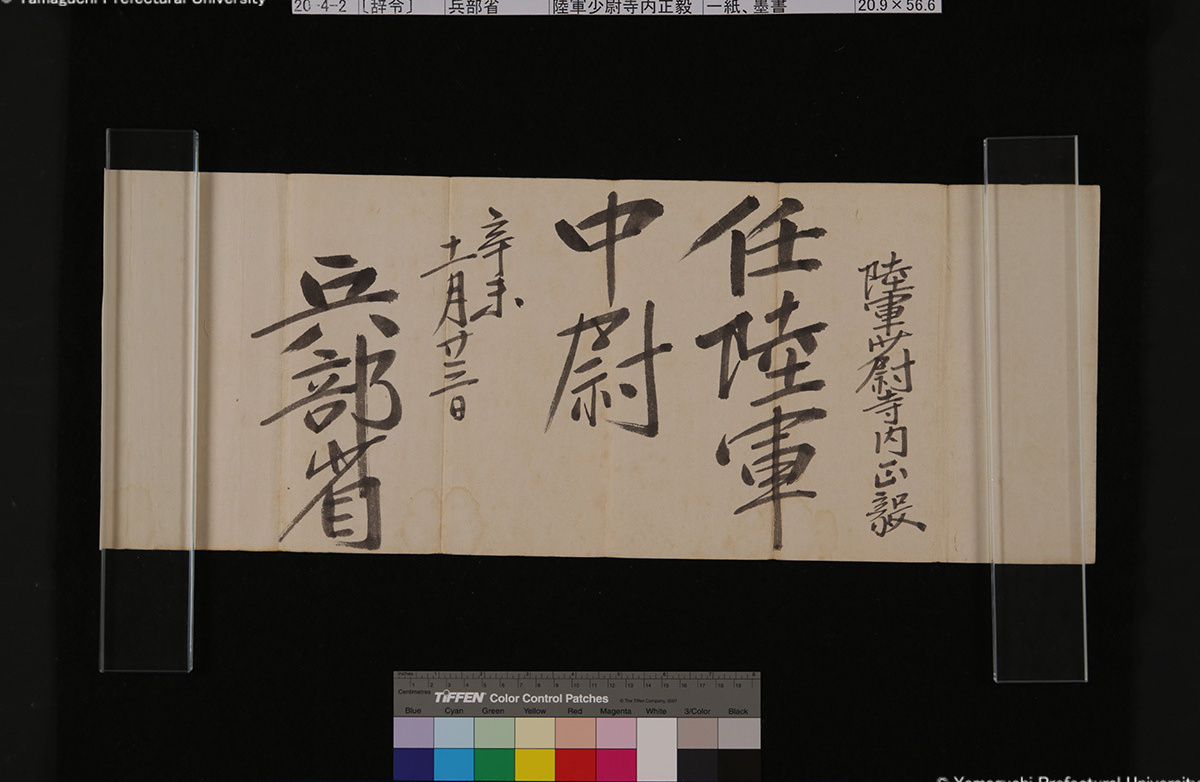 © Yamaguchi Prefectural University
20-4-2 〔辞令〕 兵部省 陸軍少尉寺内正毅 一紙、墨書 20.9×56.6
陸軍少尉寺内正毅
任陸軍
中尉
辛未
十一月廿三日
兵部省
inches 1 2 3 4 5 6 7 8
Centimetres 1 2 3 4 5 6 7 8 9 10 11 12 13 14 15 16 17 18 19
TIFFEN Color Control Patches © The Tiffen Company, 2007
Blue Cyan Green Yellow Red Magenta White 3/Color Black
© Yamaguchi Prefectural University